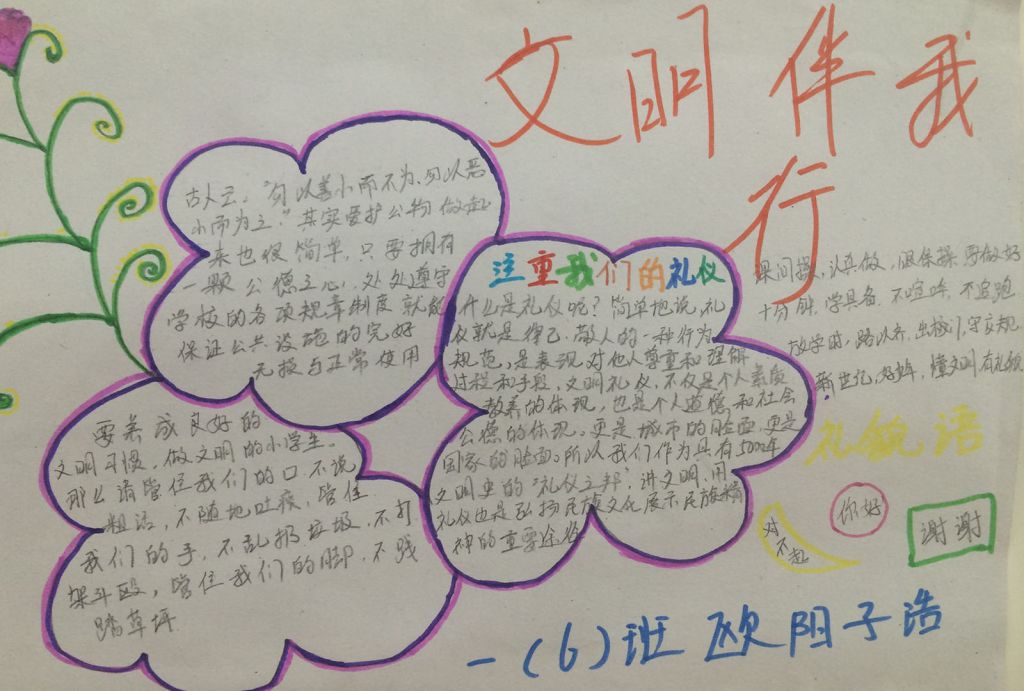 文明伴我
行
古人云:“勿以善小而不为,勿以恶
小而为之.”其实爱护公物做起
来也很简单,只要拥有
一颗公德之心,处处遵守
学校的各项规章制度就能
保证公共设施的完好
无损与正常使用
注重我们的礼仪
什么是礼仪呢?简单地说,礼
仪就是律己、敬人的一种行为
规范,是表现对他人尊重和理解
过程和手段,文明礼仪,不仅是个人素质
教养的体现,也是个人道德和社会
公德的体现。更是城市的脸面,更是
国家的脸面。所以我们作为具有5000年
文明史的“礼仪之邦”,讲文明、用
礼仪也是弘扬民族文化展示民族精
神的重要途径
要养成良好的
文明习惯,做文明的小学生.
那么请管住我们的口不说
粗话,不随地吐痰,管住
我们的手,不乱扔垃圾,不打
架斗殴,管住我们的脚,不践
踏草坪
课间操,认真做,眼保操要做好
十分钟,学具备,不喧哗,不追跑
放学时,路队齐,出校门,守交规
新世纪,好少年,懂文明有礼貌
礼貌语
对不起
你好
谢谢
一(6)班 欧阳子浩